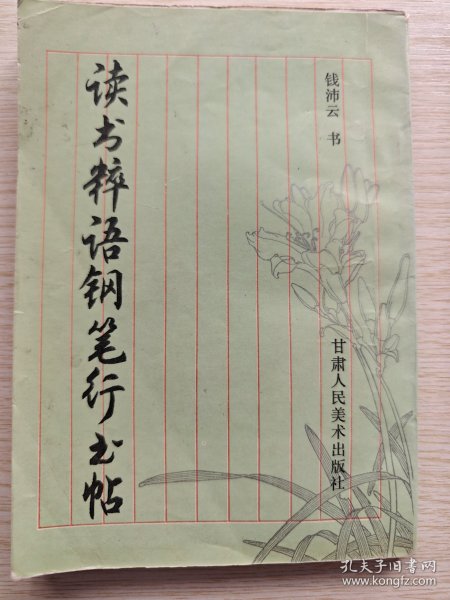 读书粹语钢笔行书帖
钱沛云 书
甘肃人民美术出版社
孔夫子旧书网
www.kongfz.com